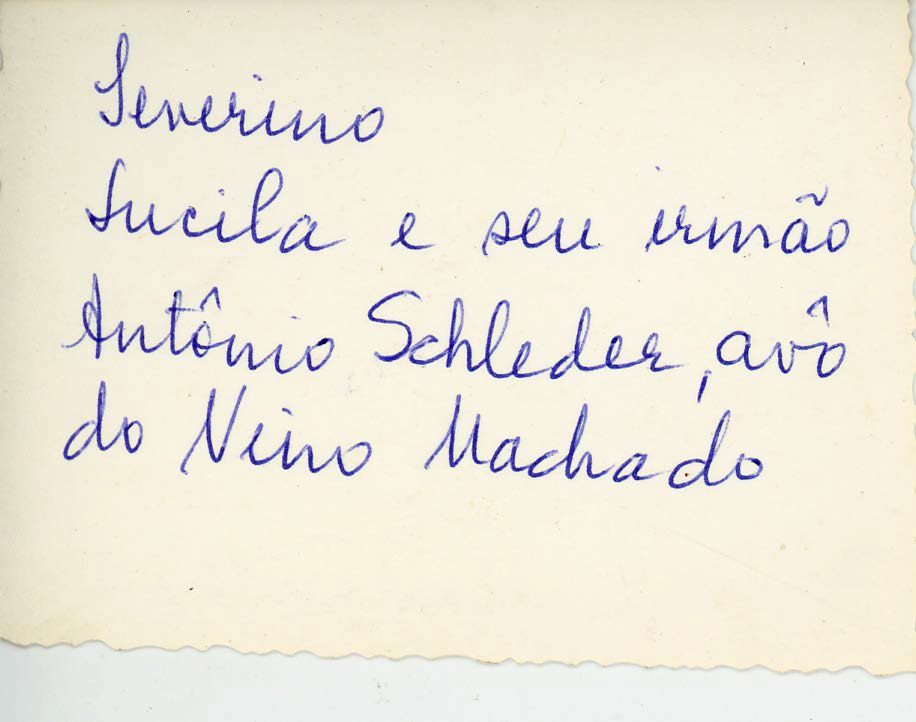 Severino
Lucila e seu irmão
Antônio Schleder, avô
do Nino Machado